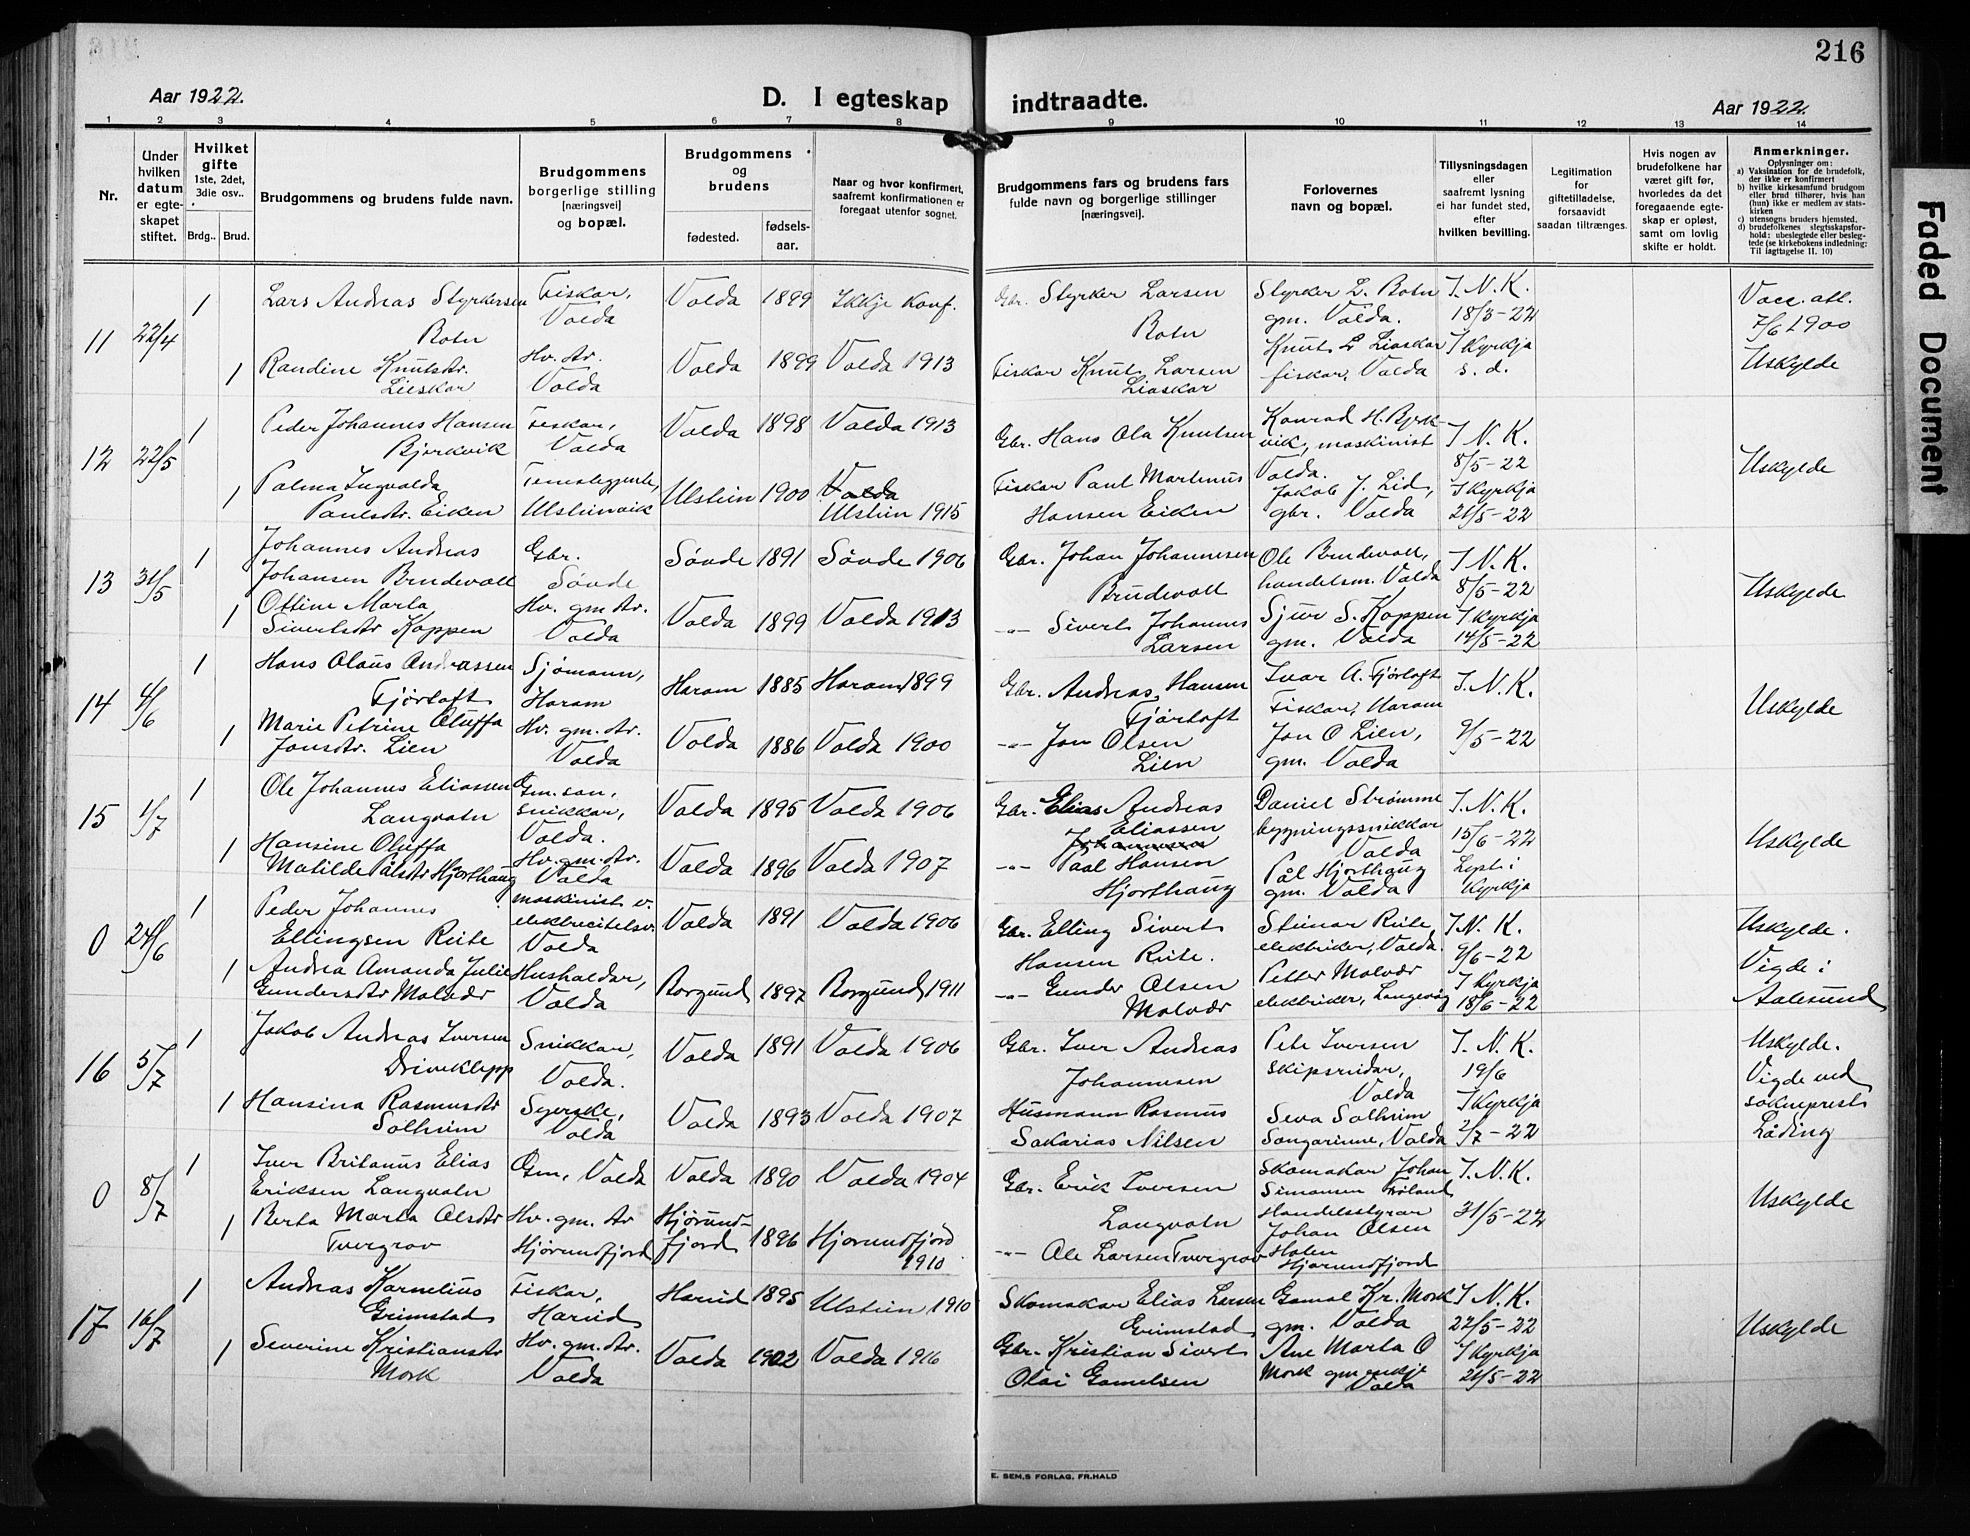 216
Aar 1922.
D. I egteskap indtraadte.
Aar 1922.
1 2 3 4 5 6 7 8 9 10 11 12 13 14
Nr.
Under hvilken datum er egteskapet stiftet.
Hvilket gifte
1ste, 2det, 3die osv..
Brdg.. Brud.
Brudgommens og brudens fulde navn.
Brudgommens borgerlige stilling [næringsvei] og bopæl.
Brudgommens og brudens
fødested.
fødsels-aar.
Naar og hvor konfirmert, saafremt konfirmationen er foregaat utenfor sognet.
Brudgommens fars og brudens fars fulde navn og borgerlige stillinger [næringsvei].
Forlovernes navn og bopæl.
Tillysningsdagen eller saafremt lysning ei har fundet sted, efter hvilken bevilling.
Legitimation for giftetilladelse, forsaavidt saadan tiltrænges.
Hvis nogen av brudefolkene har været gift før, hvorledes da det foregaaende egteskap er opløst, samt om lovlig skifte er holdt.
Anmerkninger.
Oplysninger om:
a) Vaksination for de brudefolk, der ikke er konfirmert
b) hvilke kirkesamfund brudgom eller brud tilhører, hvis han (hun) ikke er medlem av statskirken
c) utensogns bruders hjemsted.
d) brudefolkenes slegtsskapsforhold: ubeslegtede eller beslegtede (se kirkebokens indledning: Til iagttagelse II. 10)
11 22/4 1 Lars Andreas Styrkersen Botn Fiskar, Volda Volda 1899 Ikkje Konf. Gbr. Styrker Larsen Botn Styrker L. Botn gm. Volda. I. N. K. 18/3-22 Vacc. att. 7/6 1900
1 Randine Knutsdtr. Lieskar Hv. dtr. Volda Volda 1899 Volda 1913 Fiskar Knut Larsen Liaskar Knut L Liaskar fiskar, Volda I Kyrkja s. d. Uskylde
12 22/5 1 Peder Johannes Hansen Bjørkvik Fiskar, Volda Volda 1898 Volda 1913 Gbr. Hans Ola Knutsen Konrad H. Bjrkvik, maskinist Volda. I. N. K. 8/5-22 Uskylde
1 Palma Ingvalda Paulsdtr. Eiken Ulsteinvik Ulstein 1900 Volda Ulstein 1915 Fiskar Paul Martinus Hansen Eiken Jakob J. Lid, gbr. Volda I Kyrkja 21/5-22
13 31/5 1 Johannes Andreas Johansen Brudevoll Gbr. Søvde Søvde 1891 Søvde 1906 Gbr. Johan Johannesen Brudevoll Ole Brudevoll, handelsm. Volda I. N. K. 8/5-22 Uskylde
1 Ottine Marta Sivertsdtr Koppen Hv. gm dtr. Volda Volda 1899 Volda 1913 -"- Sivert Johannes Larsen Sjur S. Koppen gm. Volda I Kyrkja 14/5-22
14 4/6 1 Hans Olaus Andreassen Fjørtoft Sjømann, Haram Haram 1885 Haram 1899 Gbr. Andreas Hansen Fjørtoft Ivar A. Fjørtoft Fiskar, Haram I. N. K. Uskylde
1 Marie Petrine Oluffa Jonsdtr. Lien Hv. gm. dtr. Volda Volda 1886 Volda 1900 -"- Jon Olsen Lien Jon O Lien, gm. Volda 9/5-22
15 1/7 1 Ole Johannes Eliassen Langvatn Gm. son, snikkar, Volda. Volda 1895 Volda 1906 Gbr. Elias Andreas Eliassen Johannesen Daniel Strømme bygningssnikkar Volda I. N. K. 15/6-22 Uskylde
1 Hansine Oluffa Matilde Pålsdtr Hjorthaug Hv. gm. dtr. Volda Volda 1896 Volda 1907 -"- Paal Hansen Hjorthaug Pål Hjorthaug gm. Volda Lyst i Kyrkja
0 24/6 1 Peder Johannes Ellingsen Reite maskinist v. elektricitetsv. Volda Volda 1891 Volda 1906 Gbr. Elling Sivert Hansen Reite. Steinar Reite, elektriker, Volda. I. N. K. 9/6-22 Uskylde. Vigde i Aalesund
1 Andrea Amanda Julie Gundersdtr Molvær Hushaldar, Volda Borgund 1897 Borgund 1911 -"- Gunder Olsen Molvær Petter Molvær elektriker, Langevåg I Kyrkja 18/6-22
16 5/7 1 Jakob Andreas Iversen Driveklepp Snikkar, Volda. Volda 1891 Volda 1906 Gbr. Iver Andreas Johannesen Pete Iversen skipsreidar, Volda I. N. K. 19/6 Uskylde. Vigde ved sokneprest Låding
1 Hansina Rasmusdtr Solheim Syerske, Volda Volda 1893 Volda 1907 Husmann Rasmus Sakarias Nilsen Seva Solheim Songarinne, Volda I Kyrkja 2/7-22
0 8/7 1 Iver Britanus Elias Eriksen Langvatn Gm, Volda Volda 1890 Volda 1904 Gbr. Erik Iversen Langvatn Skomakar Johan Simonsen Frøland I. N. K. 31/5-22 Uskylde
1 Berta Marta Olsdtr Tvergrov Hv. gm. dtr Hjørundfjord Hjørundfjord 1896 Hjørundfjord 1910 -"- Ole Larsen Tvergrov Handelsstyrar Johan Olsen Holen Hjørundfjord
17 16/7 1 Andreas Kornelius Grimstad Fiskar, Hareid Hareid 1895 Ulstein 1910 Skomakar Elias Larsen Grimstad Gamal Kr. Mork gm. Volda I. N. K. 22/5-22 Uskylde
1 Severine Kristiansdtr Mork Hv. gm. dtr. Volda Volda 1902 Volda 1916 Gbr. Kristian Sivert Olai Gamelsen Ane Marta O Mork gm enkje Volda I Kyrkja 21/5-22
E. SEM,S FORLAG, FR.HALD
Faded Document